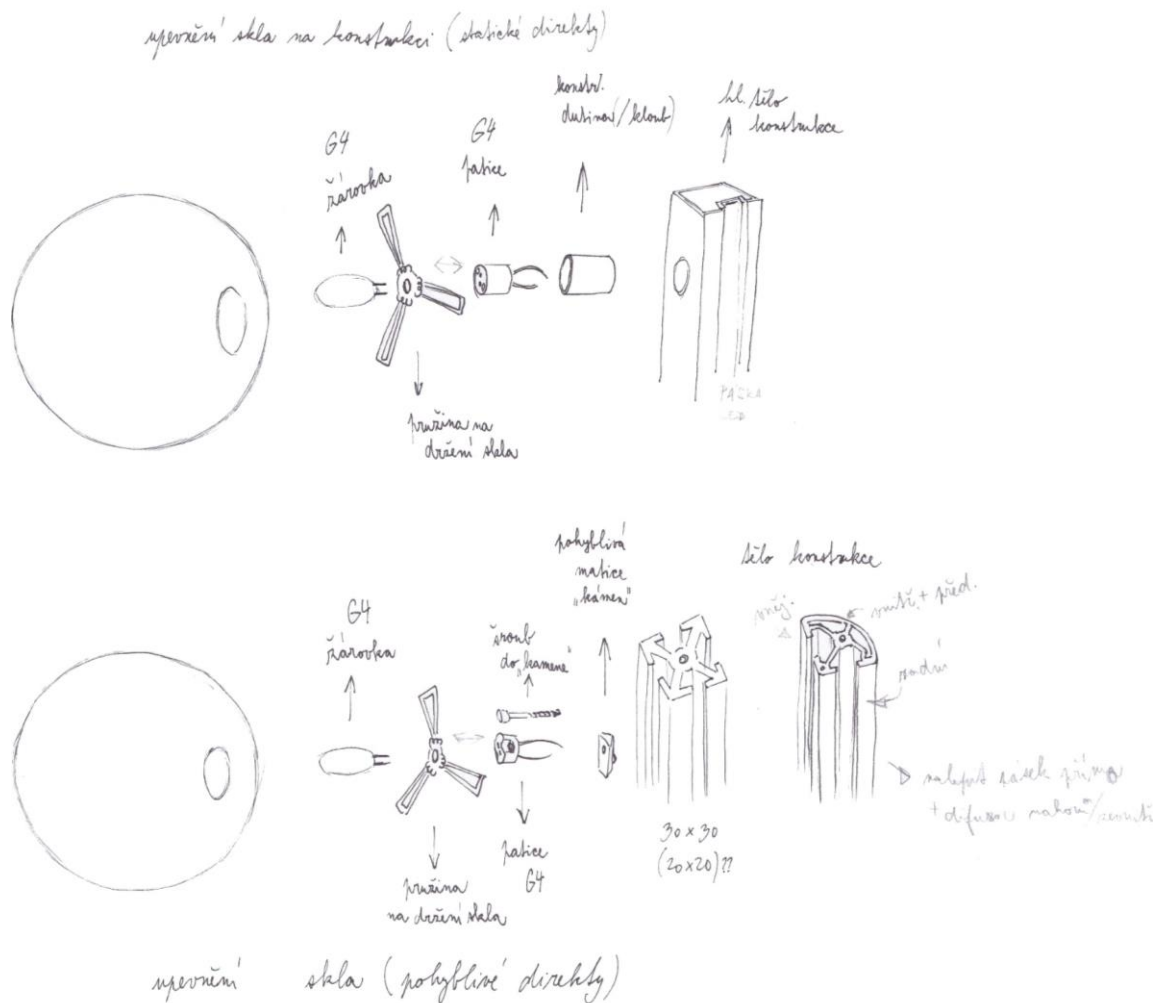 upevnění skla na konstrukci (statické direkty)
G4
žárovka
G4
patice
konstr.
dutinou (/kloub)
hl. tělo
konstrukce
pružina na
držení skla
PÁSKA
LED
G4
žárovka
šroub
do „kamene"
pohyblivá
matice
„kámen"
tělo konstrukce
vněj.
vnitř. + před.
zadní
nalepit pásek přímo
+ difuzor nahoru/
30 x 30
(20x20)??
patice
G4
pružina
na držení skla
upevnění skla (pohyblivé direkty)